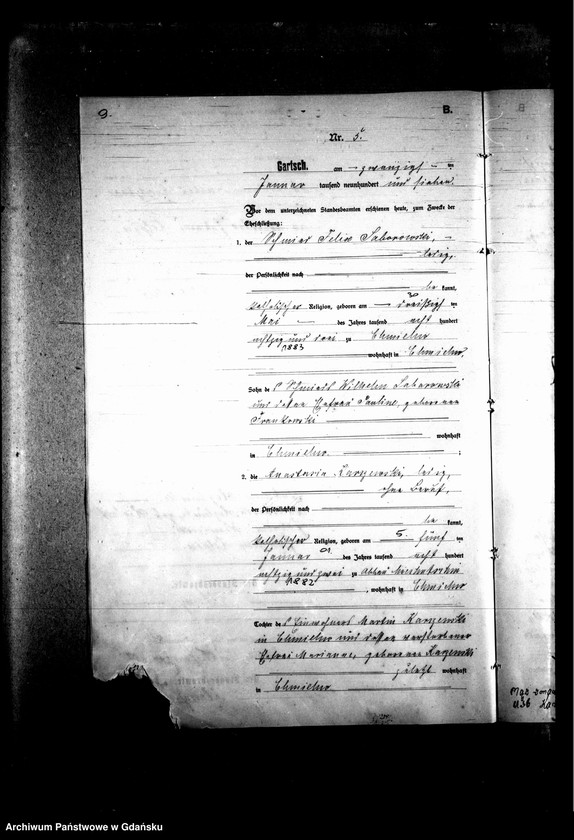 9.
B.
Nr. 5.
Gartsch. am zwanzigsten
Januar tausend neunhundert und sieben.
Vor dem unterzeichneten Standesbeamten erschienen heute, zum Zwecke der
Eheschließung:
1. der Schmied Felix Saborowski,
ledig,
der Persönlichkeit nach
be kannt,
katholischer Religion, geboren am dreißigsten
Mai des Jahres tausend acht hundert
achtzig und drei zu Chmielno
1883
wohnhaft in Chmielno,
Sohn des Schmieds Wilhelm Saborowski
und dessen Ehefrau Pauline, geborenen
wohnhaft
in Chmielno ;
2. die Anastasia
ledig,
ohne Beruf,
der Persönlichkeit nach
be kannt,
katholischer Religion, geboren am 5. fünften
Januar 01 des Jahres tausend acht hundert
achtzig und zwei zu Abbau
1882
, wohnhaft in Chmielno
Tochter des Einwohners Martin
in Chmielno und dessen verstorbener
Ehefrau Marianne, geborenen
zuletzt wohnhaft
in Chmielno
B
Archiwum Państwowe w Gdańsku